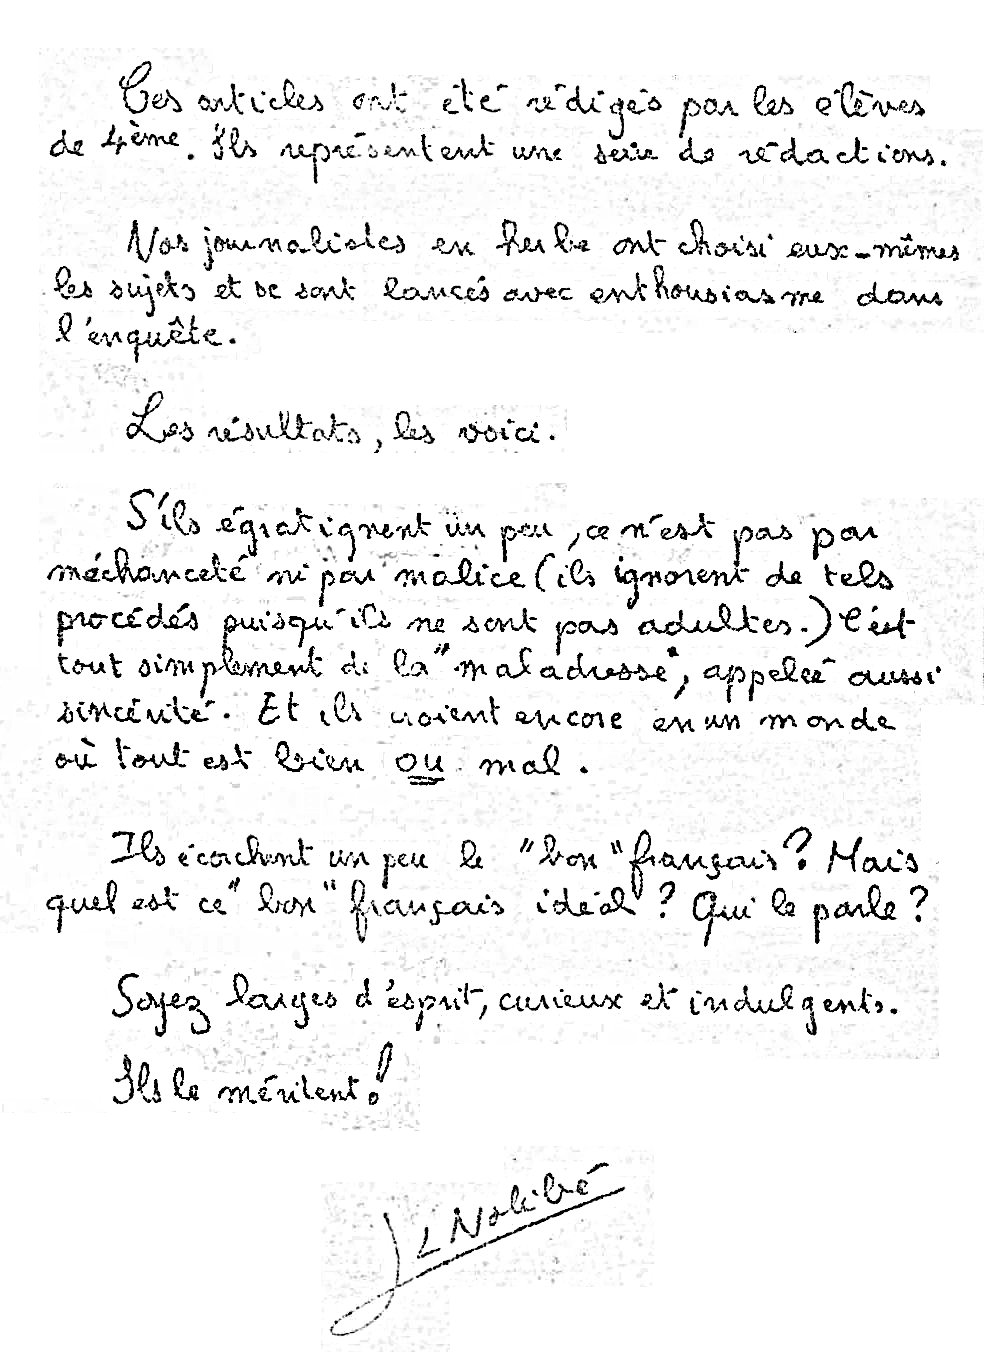 Ces articles ont été rédigés par les élèves
de 4ème. Ils représentent une série de rédactions.
Nos journalistes en herbe ont choisi eux-mêmes
les sujets et se sont lancés avec enthousiasme dans
l'enquête.
Les résultats, les voici.
S'ils égratignent un peu, ce n'est pas par
méchanceté ni par malice (ils ignorent de tels
procédés puisqu'ils ne sont pas adultes.) C'est
tout simplement de la "maladresse", appelée aussi
sincérité. Et ils croient encore en un monde
où tout est bien ou mal.
Ils écorchent un peu le "bon" français? Mais
quel est ce "bon" français idéal? Qui le parle?
Soyez larges d'esprit, curieux et indulgents.
Ils le méritent!
JL Nolibé